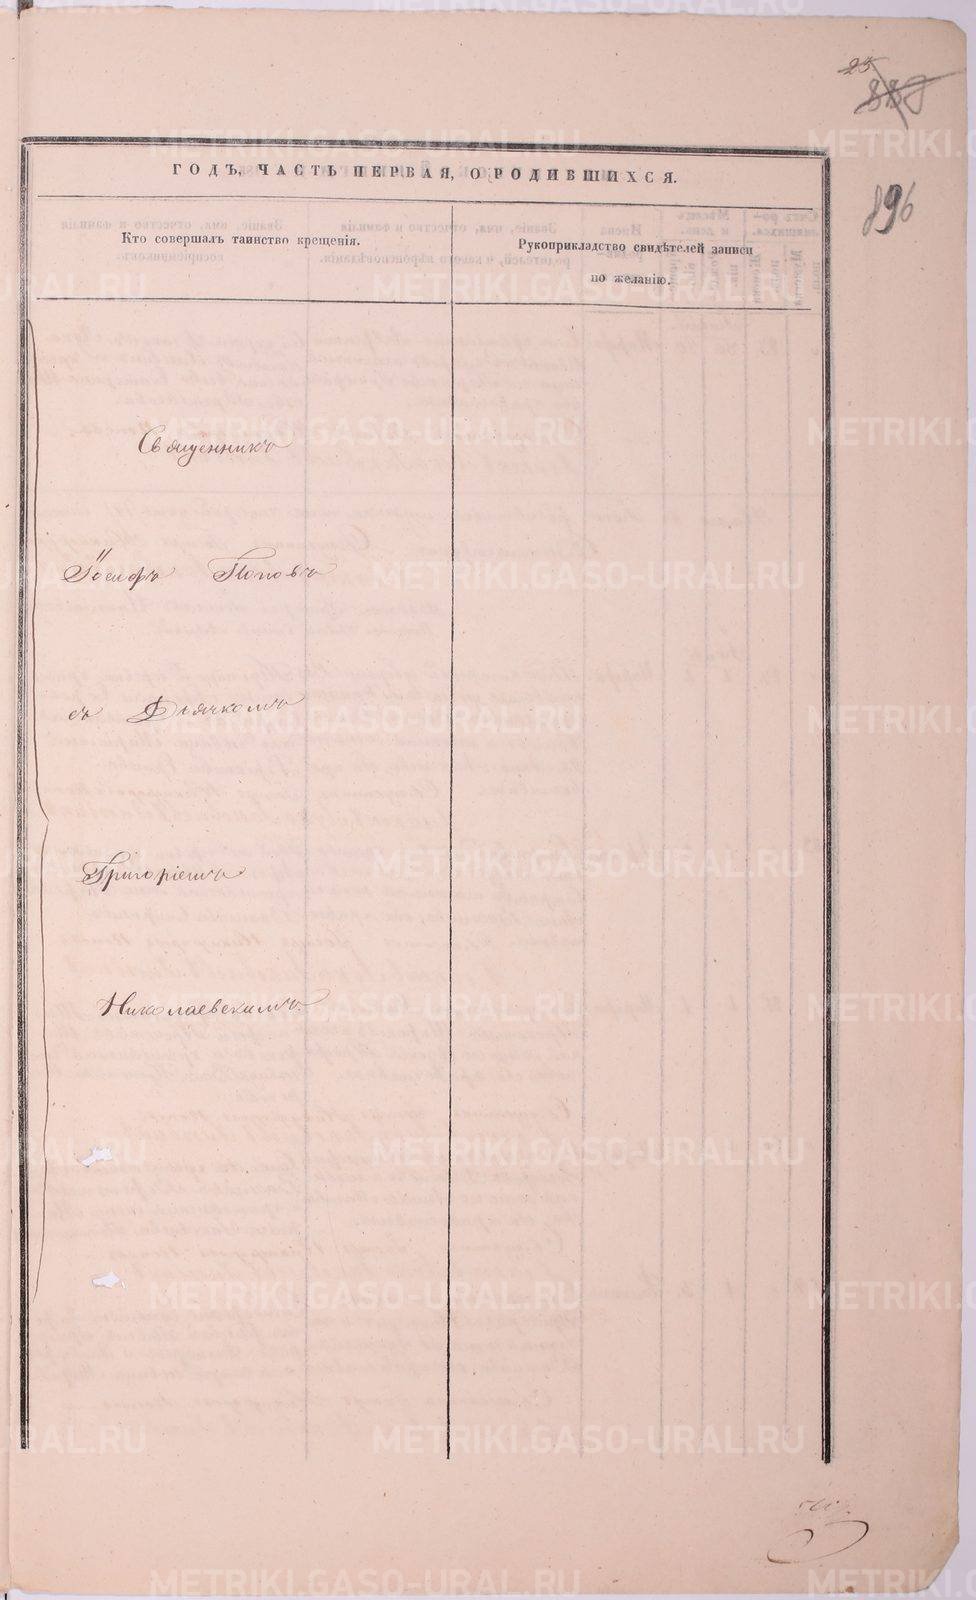 25
896
ГОДЪ, ЧАСТЬ ПЕРВАЯ, О РОДИВШИХСЯ.
Кто совершалъ таинство крещенія.
Рукоприкладство свидѣтелей записи
по желанію.
Священникъ
Іосифъ Поповъ
съ Дьячкомъ
Григоріемъ
Николаевскимъ.
METRIKI.GASO-URAL.RU